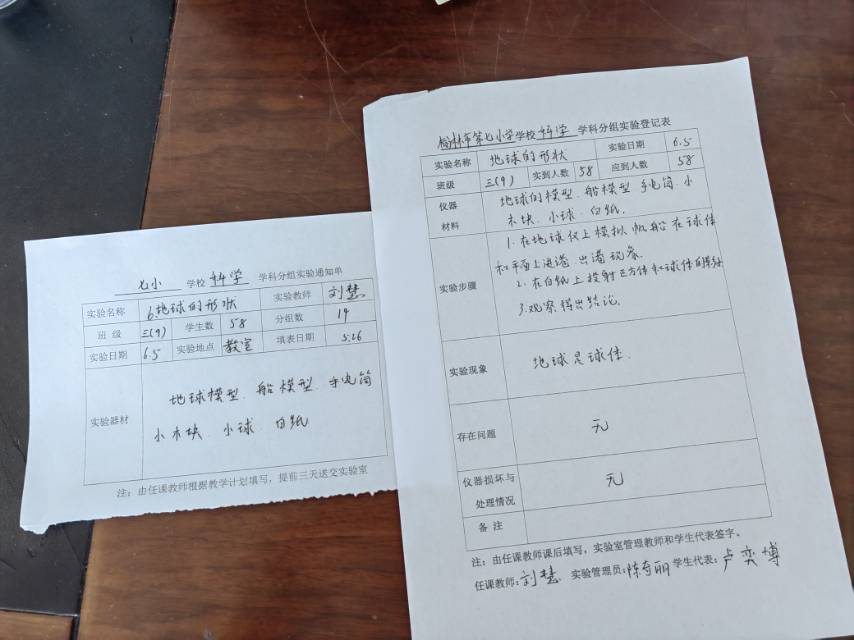 七小 学校 科学 学科分组实验通知单
实验名称 6.地球的形状 实验教师 刘慧
班 级 三(9) 学生数 58 分组数 14
实验日期 6.5 实验地点 教室 填表日期 5.26
实验器材
地球模型、船模型、手电筒
小木块、小球、白纸
注：由任课教师根据教学计划填写，提前三天送交实验室
榆林市第七小学学校 科学 学科分组实验登记表
实验名称 地球的形状 实验日期 6.5
班级 三(9) 实到人数 58 应到人数 58
仪器
材料
地球的模型、船模型、手电筒、小
木块、小球、白纸.
实验步骤
1.在地球仪上模拟帆船在球体
和平面上进港、出港现象.
2.在白纸上投射正方体和球体的
3.观察得出结论.
实验现象 地球是球体.
存在问题 无
仪器损坏与
处理情况
无
备 注
注：由任课教师课后填写，实验室管理教师和学生代表签字。
任课教师:刘慧 实验管理员: 学生代表:卢奕博